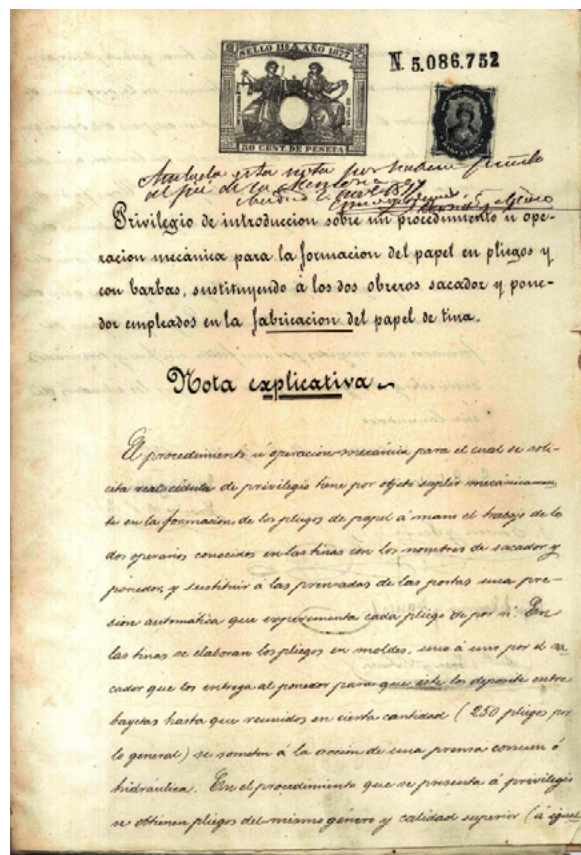 SELLO 11º AÑO 1877
50 CENT. DE PESETA
N. 5.086.752
Anulada esta nota por haberse
al pié de la
Privilegio de introduccion sobre un procedimiento ú ope-
racion mecánica para la formacion del papel en pliegos y
con barbas, sustituyendo á los dos obreros sacador y pone-
dor empleados en la fabricacion del papel de tina.
Nota explicativa
El procedimiento ú operacion mecánica para el cual se soli-
cita real cédula de privilegio tiene por objeto suplir mecánicamen-
te en la formacion de los pliegos de papel á mano el trabajo de los
dos operarios conocidos en las tinas con los nombres de sacador y
ponedor, y sustituir á las prensadas de las portas una pre-
sion automática que experimenta cada pliego de por si. En
las tinas se elaboran los pliegos en moldes, uno á uno por el sa-
cador que los entrega al ponedor para que este los deposite entre
bayetas hasta que reunidos en cierta cantidad (250 pliegos por
lo general) se someten á la accion de una prensa comun ó
hidráulica. En el procedimiento que se presenta á privilegio
se obtienen pliegos del mismo género y calidad superior (á igual